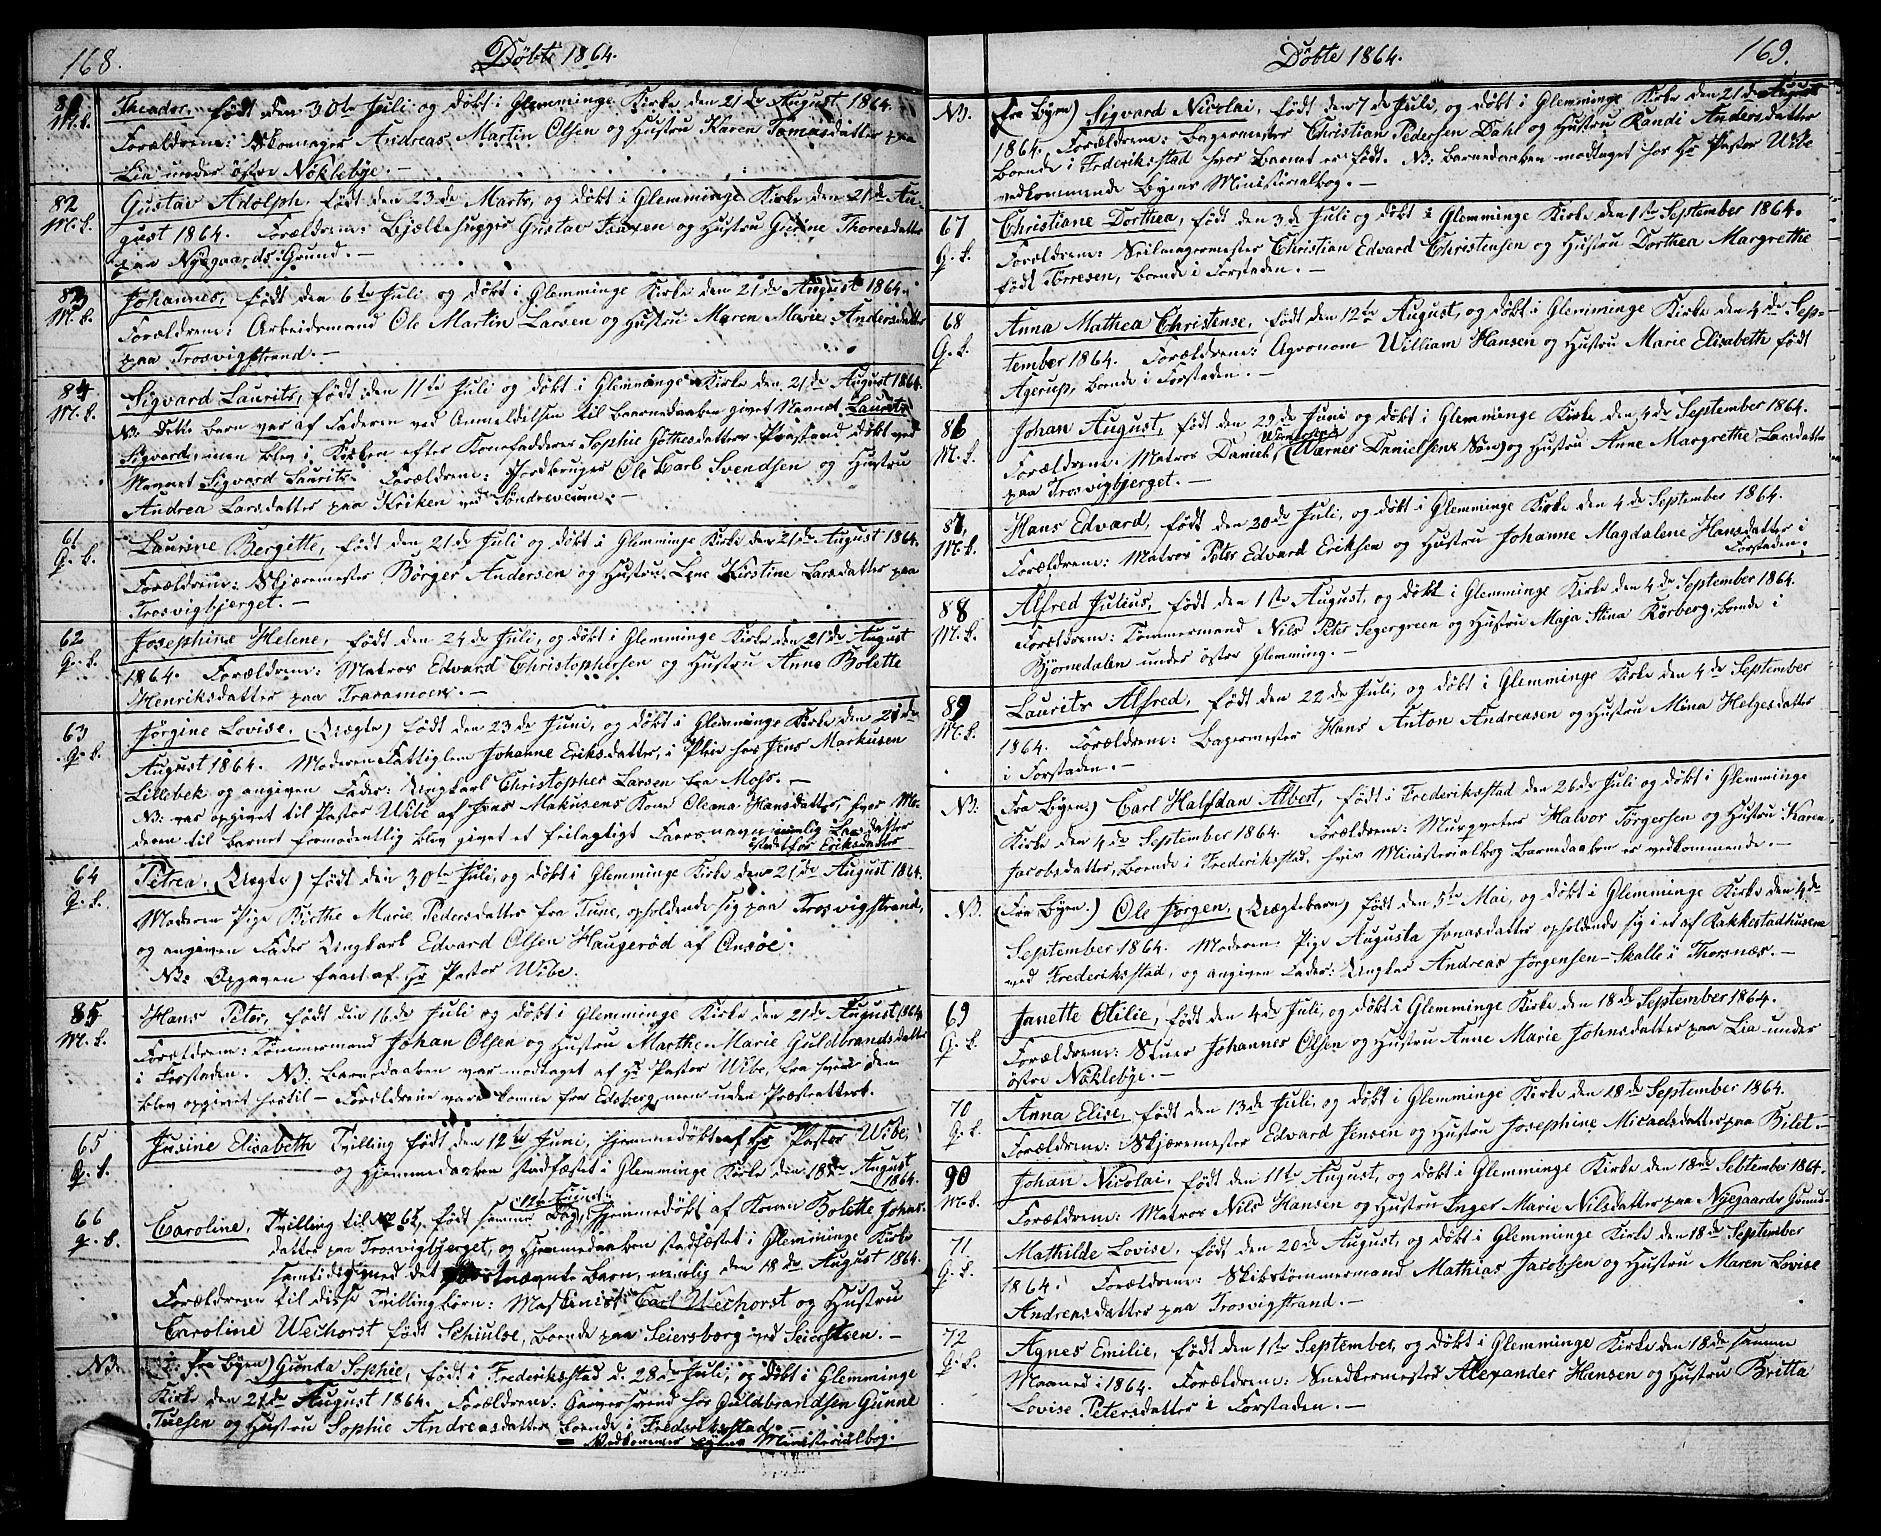 168.
Döbte 1864.
81
M.k.
Theodor, født den 30te Juli og døbt i Glemminge Kirke den 21de August 1864.
Forældrene: Skomager Andreas Martin Olsen og Hustru Karen Tomasdatter paa
Lia under östre Nöklebye. —
82
M.k.
Gustav Adolph, født den 23de Marts, og døbt i Glemminge Kirke den 21de Au-
gust 1864. Forældrene Bjælkehugger Gustav Isaxen og Hustru Gurine Thoresdatter
paa Nygaards Grund. —
83
M.k.
Johannes, født den 6te Juli og døbt i Glemminge Kirke den 21de August 1864.
Forældrene: Arbeidsmand Ole Martin Larsen og Hustru Maren Marie Andersdatter
paa Trosvigstrand. —
84
M.k.
Sigvard Laurits, født den 11te Juli og døbt i Glemminge Kirke den 21de August 1864.
NB. Dette barn var af Faderen ved Anmeldelsen til Barnedaaben givet Navnet Laurits
Sigvard, men blev i Kirken efter Konefadder Sophie Göthesdatters Paastand døbt ved
Navnet Sigvard Laurits. Forældrene: Jordbruger Ole Carl Svendsen og Hustru
Andrea Larsdatter paa Kröken ved Söndreveum. —
61
Q.k.
Laurine Bergitte, født den 21de Juli og døbt i Glemminge Kirke den 21de August 1864.
Forældrene: Skjæremester Börger Andersen og Hustru Lene Kirstine Larsdatter paa
Trosvigbjerget. —
62
Q.k.
Josephine Helene, født den 24de Juli, og døbt i Glemminge Kirke den 21de August
1864. Forældrene: Matros Edvard Christophersen og Hustru Anne Bolette
Henriksdatter paa Traramoen. —
63
Q.k.
Jörgine Lovise, (Uægte) født den 23de Juni, og døbt i Glemminge Kirke den 21de
August 1864. Moderen Fattiglem Johanne Eriksdatter, i Pleie hos Jens Markusen
Lillebek og angiven Fader: Ungkarl Christopher Larsen fra Moss. —
NB. var opgivet til Pastor Wibe af Jens Makusens Kone Oleana Hansdatter, hvor Mo-
deren til barnet formodentlig blev givet et feilagtigt Farsnavn nemlig Larsdatter
istedetfor Eriksdatter
64
Q.k.
Petrea, (Uægte) født den 30te Juli, og døbt i Glemminge Kirke den 21de August 1864.
Moderen Pige Kirthe Marie Pedersdatter fra Tune, opholdende sig paa Trosvigstrand,
og angiven Fader Ungkarl Edvard Olsen Haugeröd af Onsöe.
NB: Opgaven faaet af Hr Pastor Wibe.
85
M.k.
Hans Peter, født den 16de Juli og døbt i Glemminge Kirke den 21de August 1864
Forældrene: Tömmermand Johan Olsen og Hustru Marthe Marie Guldbrandsdatter
i Forstaden. NB: Barnedaaben var modtaget af Hr Pastor Wibe, fra hvem den
blev opgivet hertil — Forældrene vare komne fra Edsberg men uden Præsteattest.
65
Q.k.
Jusine Elisabeth Tvilling født den 12te Juni, hjemmedøbt af Hr Pastor Wibe,
og Hjemmedaaben stadfæstet i Glemminge Kirke den 18de August
1864.
66
Q.k.
Caroline, Tvilling til No 65, født samme Dag, hjemmedøbt af Konen Bolette Johans-
datter paa Trosvigbjerget, og Hjemmedaaben stadfæstet i Glemminge Kirke
samtidig med det førstnævnte Barn, nemlig den 18de August 1864.
Forældrene til disse Tvillingbörn: Maskinist Carl Wechorst og Hustru
Caroline Wechorst født Schulse, boende paa Seiersborg ved Seierstsen. —
NB.
(fra Byen) Gunda Sophie, født i Frederiksstad d. 28de Juli, og døbt i Glemminge
Kirke den 21de August 1864. Forældrene: Garversvend hos Guldbrandsen Gunne
Tuesen og Hustru Sophie Andreasdatter boende i Frederiksstad.
— Vedkommer Byens Ministerialbog.
Döbte 1864.
169.
NB.
(fra Byen) Sigvard Nicolai, født den 7de Juli, og døbt i Glemminge Kirke den 21de August
1864. Forældrene: Bagermester Christian Pedersen Dahl og Hustru Randi Andersdatter
boende i Frederiksstad hvor Barnet er født. NB: barnedaaben modtaget hos Hr Pastor Wibe
vedkommende Byens Ministerialbog. —
67
Q.k.
Christiane Dorthea, født den 3de Juli og døbt i Glemminge Kirke den 1ste September 1864.
Forældrene: Seilmagermester Christian Edvard Christensen og Hustru Dorthea Margrethe
født Torresen, boende i Forstaden. —
68
Q.k.
Anna Mathea Christense, født den 12te August, og døbt i Glemminge Kirke den 4de Sep-
tember 1864. Forældrene: Agronom William Hansen og Hustru Marie Elisabeth født
Agerup, boende i Forstaden. —
86
M.k.
Johan August, født den 29de Juni og døbt i Glemminge Kirke den 4de September 1864.
Forældrene: Matros Daniel (Warner Danielsens Søn) og Hustru Anne Margrethe Larsdatter
paa Trosvigbjerget. —
87
M.k.
Hans Edvard, født den 20de Juli, og døbt i Glemminge Kirke den 4de September 1864.
Forældrene: Matros Peter Edvard Eriksen og Hustru Johanne Magdalene Hansdatter i
Forstaden.
88
M.k.
Alfred Julius, født den 1ste August, og døbt i Glemminge Kirke den 4de September 1864.
Forældrene: Tömmermand Nils Peter Segergreen og Hustru Maja Stina Rörberg, boende i
Björnedalen under östre Glemming. —
89
M.k.
Laurits Alfred, født den 22de Juli, og døbt i Glemminge Kirke den 4de September
1864. Forældrene: Bagermester Hans Anton Andreasen og Hustru Mina Helgesdatter
i Forstaden. —
NB.
(Fra Byen.) Carl Halfdan Albert, født i Frederiksstad den 26de Juli og døbt i Glemminge
Kirke den 4de September 1864. Forældrene: Murgpeter Halvor Torgersen og Hustru Karen
Jacobsdatter, boende i Frederiksstad, hvis Ministerialbog barnedaaben er vedkommende. —
NB.
(Fra Byen.) Ole Jörgen, (Uægtebarn) født den 5te Mai, og døbt i Glemminge Kirke den 4de
September 1864. Moderen: Pige Augusta Jonasdatter opholdende sig i et af Rakkestadhusene
ved Frederiksstad, og angiven Fader: Ungkar Andreas Jörgensen-Skalle i Thorsnæs. —
69
Q.k.
Janette Otilie, født den 4de Juli, og døbt i Glemminge Kirke den 18de September 1864.
Forældrene: Stuer Johannes Olsen og Hustru Anne Marie Johnsdatter paa Lia under
östre Nöklebye. —
70
Q.k.
Anna Elise, født den 13de Juli, og døbt i Glemminge Kirke den 18de September 1864.
Forældrene: Skjæremester Edvard Jensen og Hustru Josephine Micaelsdatter paa Bilet —
90
M.k.
Johan Nicolai, født den 11te August, og døbt i Glemminge Kirke den 18de September 1864.
Forældrene: Matros Nils Hansen og Hustru Inger Marie Nilsdatter paa Nyegaards Grund —
71.
Q.k.
Mathilde Lovise, født den 20de August, og døbt i Glemminge Kirke den 18de September
1864. Forældrene: Skibstömmermand Mathias Jacobsen og Hustru Maren Lovise
Andreasdatter paa Trosvigstrand. —
72
Q.k.
Agnes Emilie, født den 1ste September, og døbt i Glemminge Kirke den 18de samme
Maaned i 1864. Forældrene: Snedkermester Alexander Hansen og Hustru Britta
Lovise Petersdatter i Forstaden. —